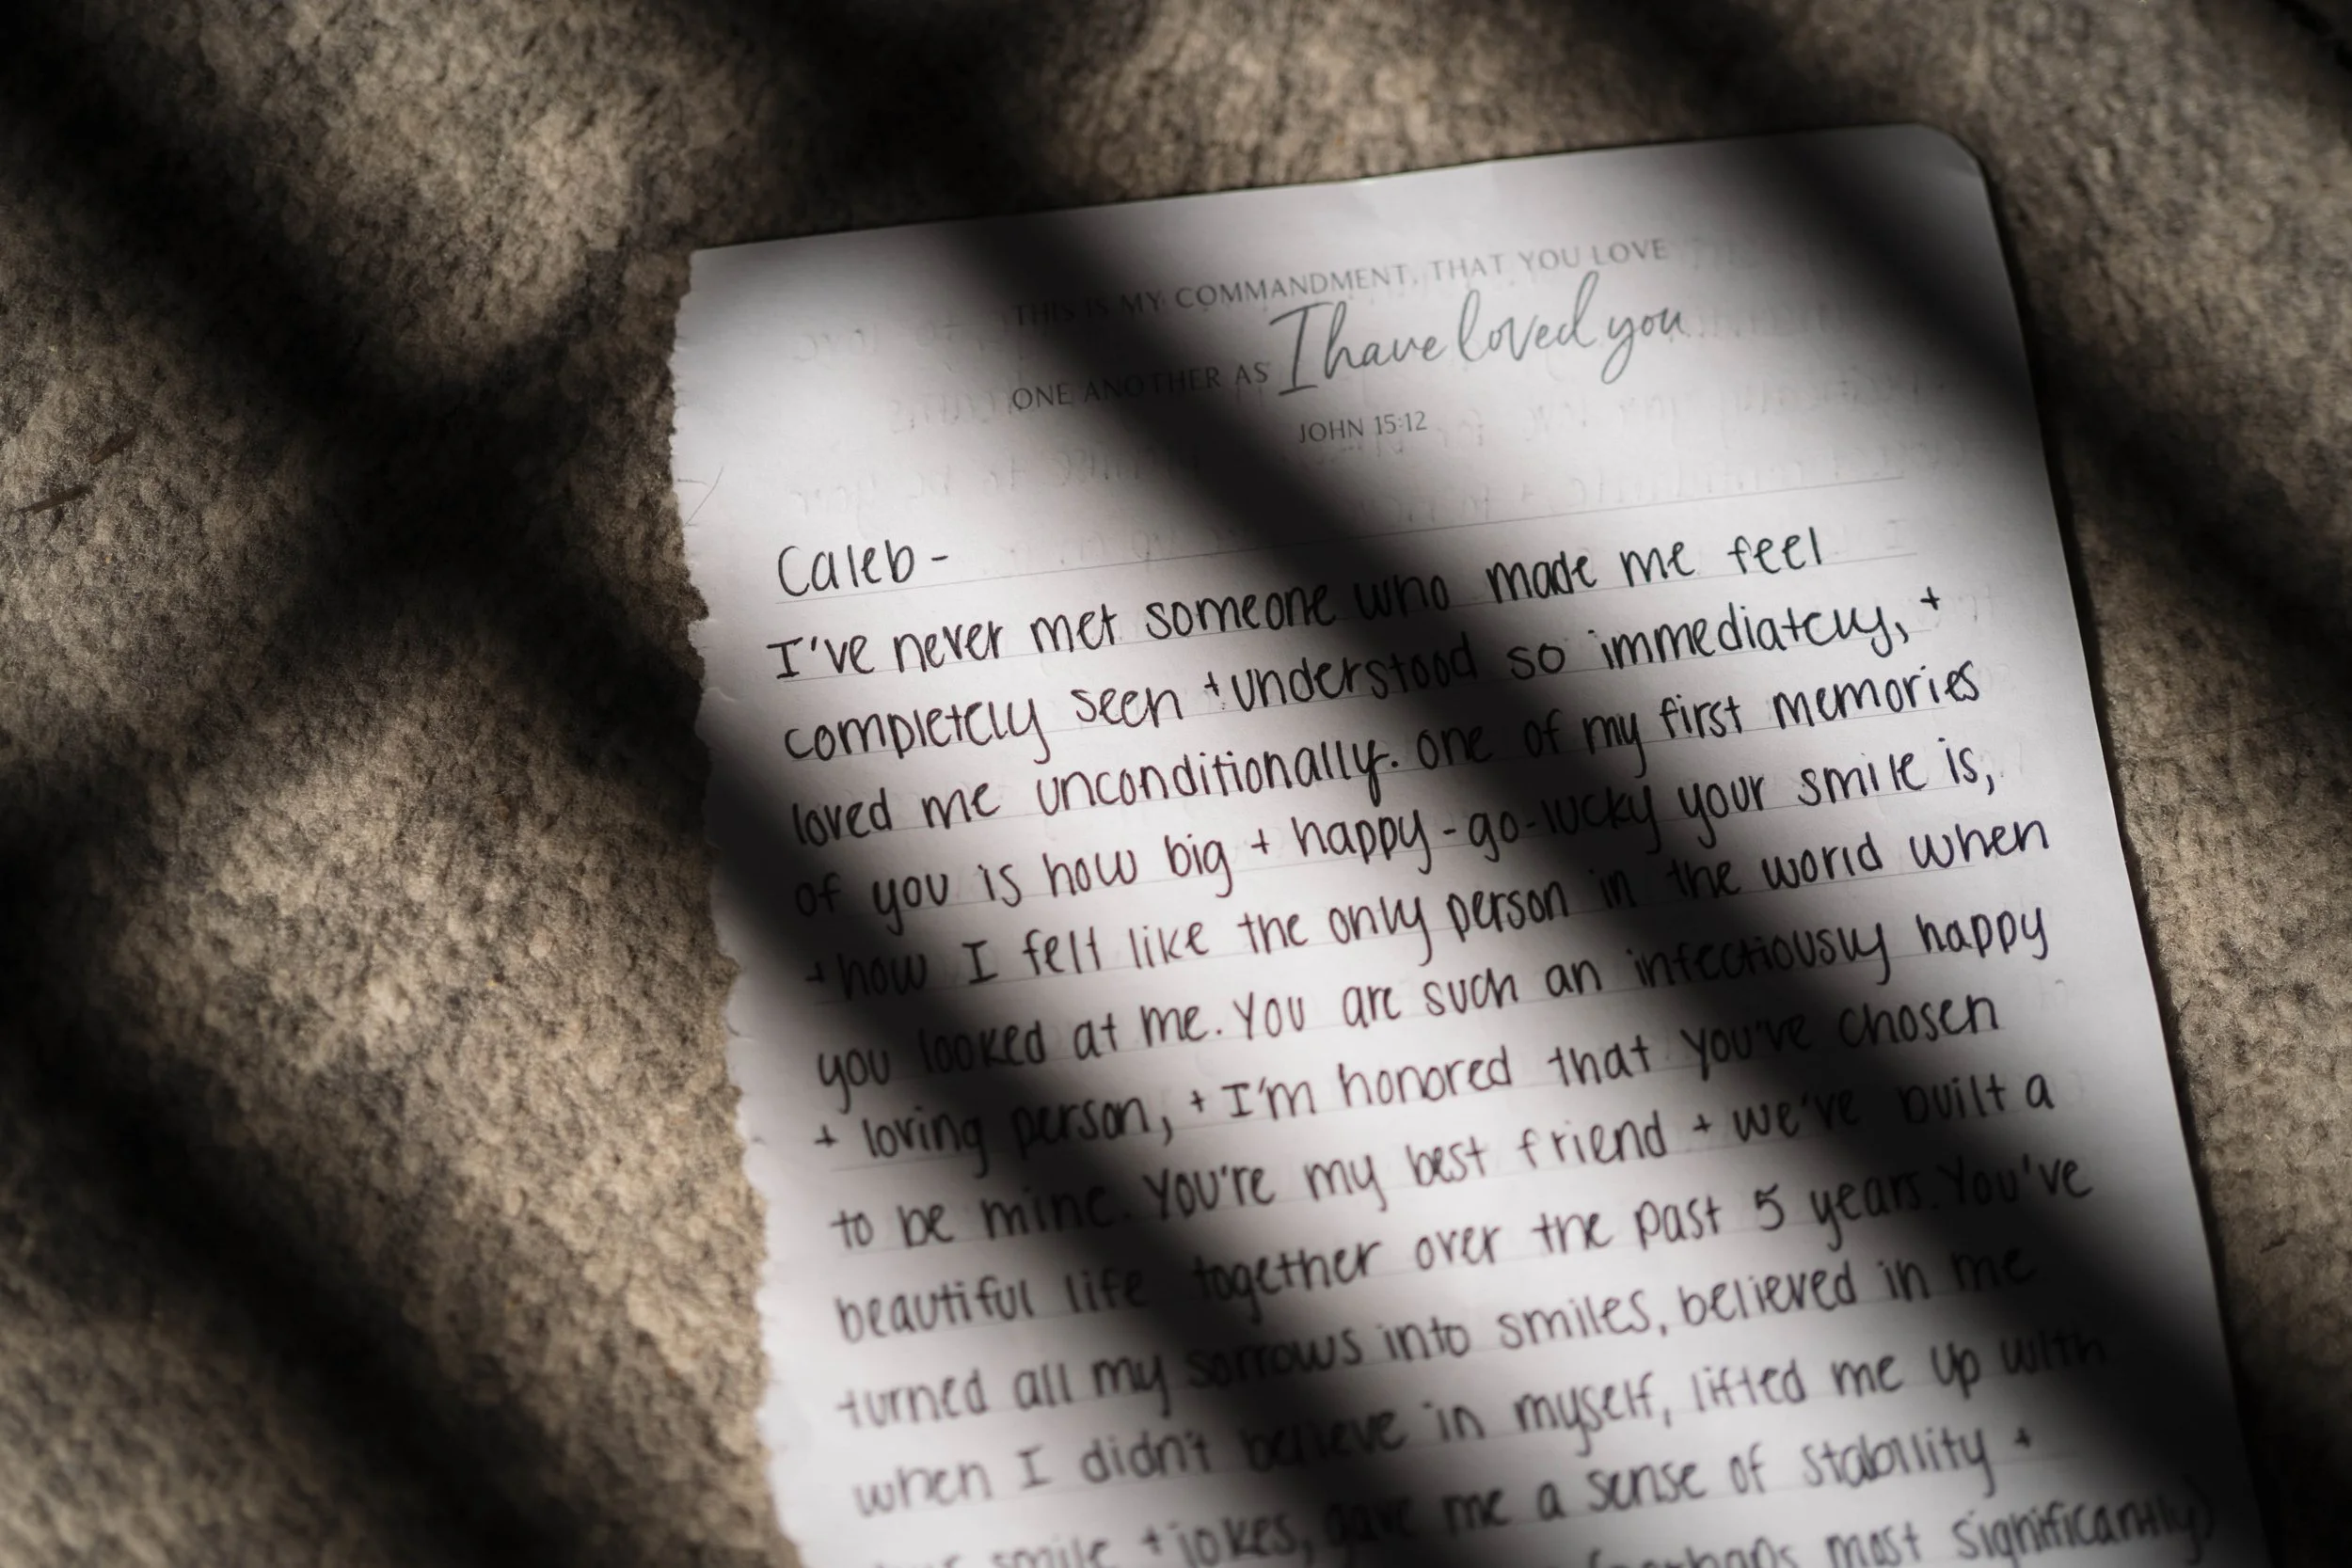 THIS IS MY COMMANDMENT, THAT YOU LOVE
ONE ANOTHER AS I have loved you
JOHN 15:12
Caleb -
I've never met someone who made me feel
completely seen + understood so immediately, +
loved me unconditionally. One of my first memories
of you is how big + happy-go-lucky your smile is,
+ how I felt like the only person in the world when
you looked at me. You are such an infectiously happy
+ loving person, + I'm honored that you've chosen
to be mine. You're my best friend + we've built a
beautiful life together over the past 5 years. You've
turned all my sorrows into smiles, believed in me
when I didn't believe in myself, lifted me up with
smile + jokes, gave me a sense of stability +
(perhaps most significantly)